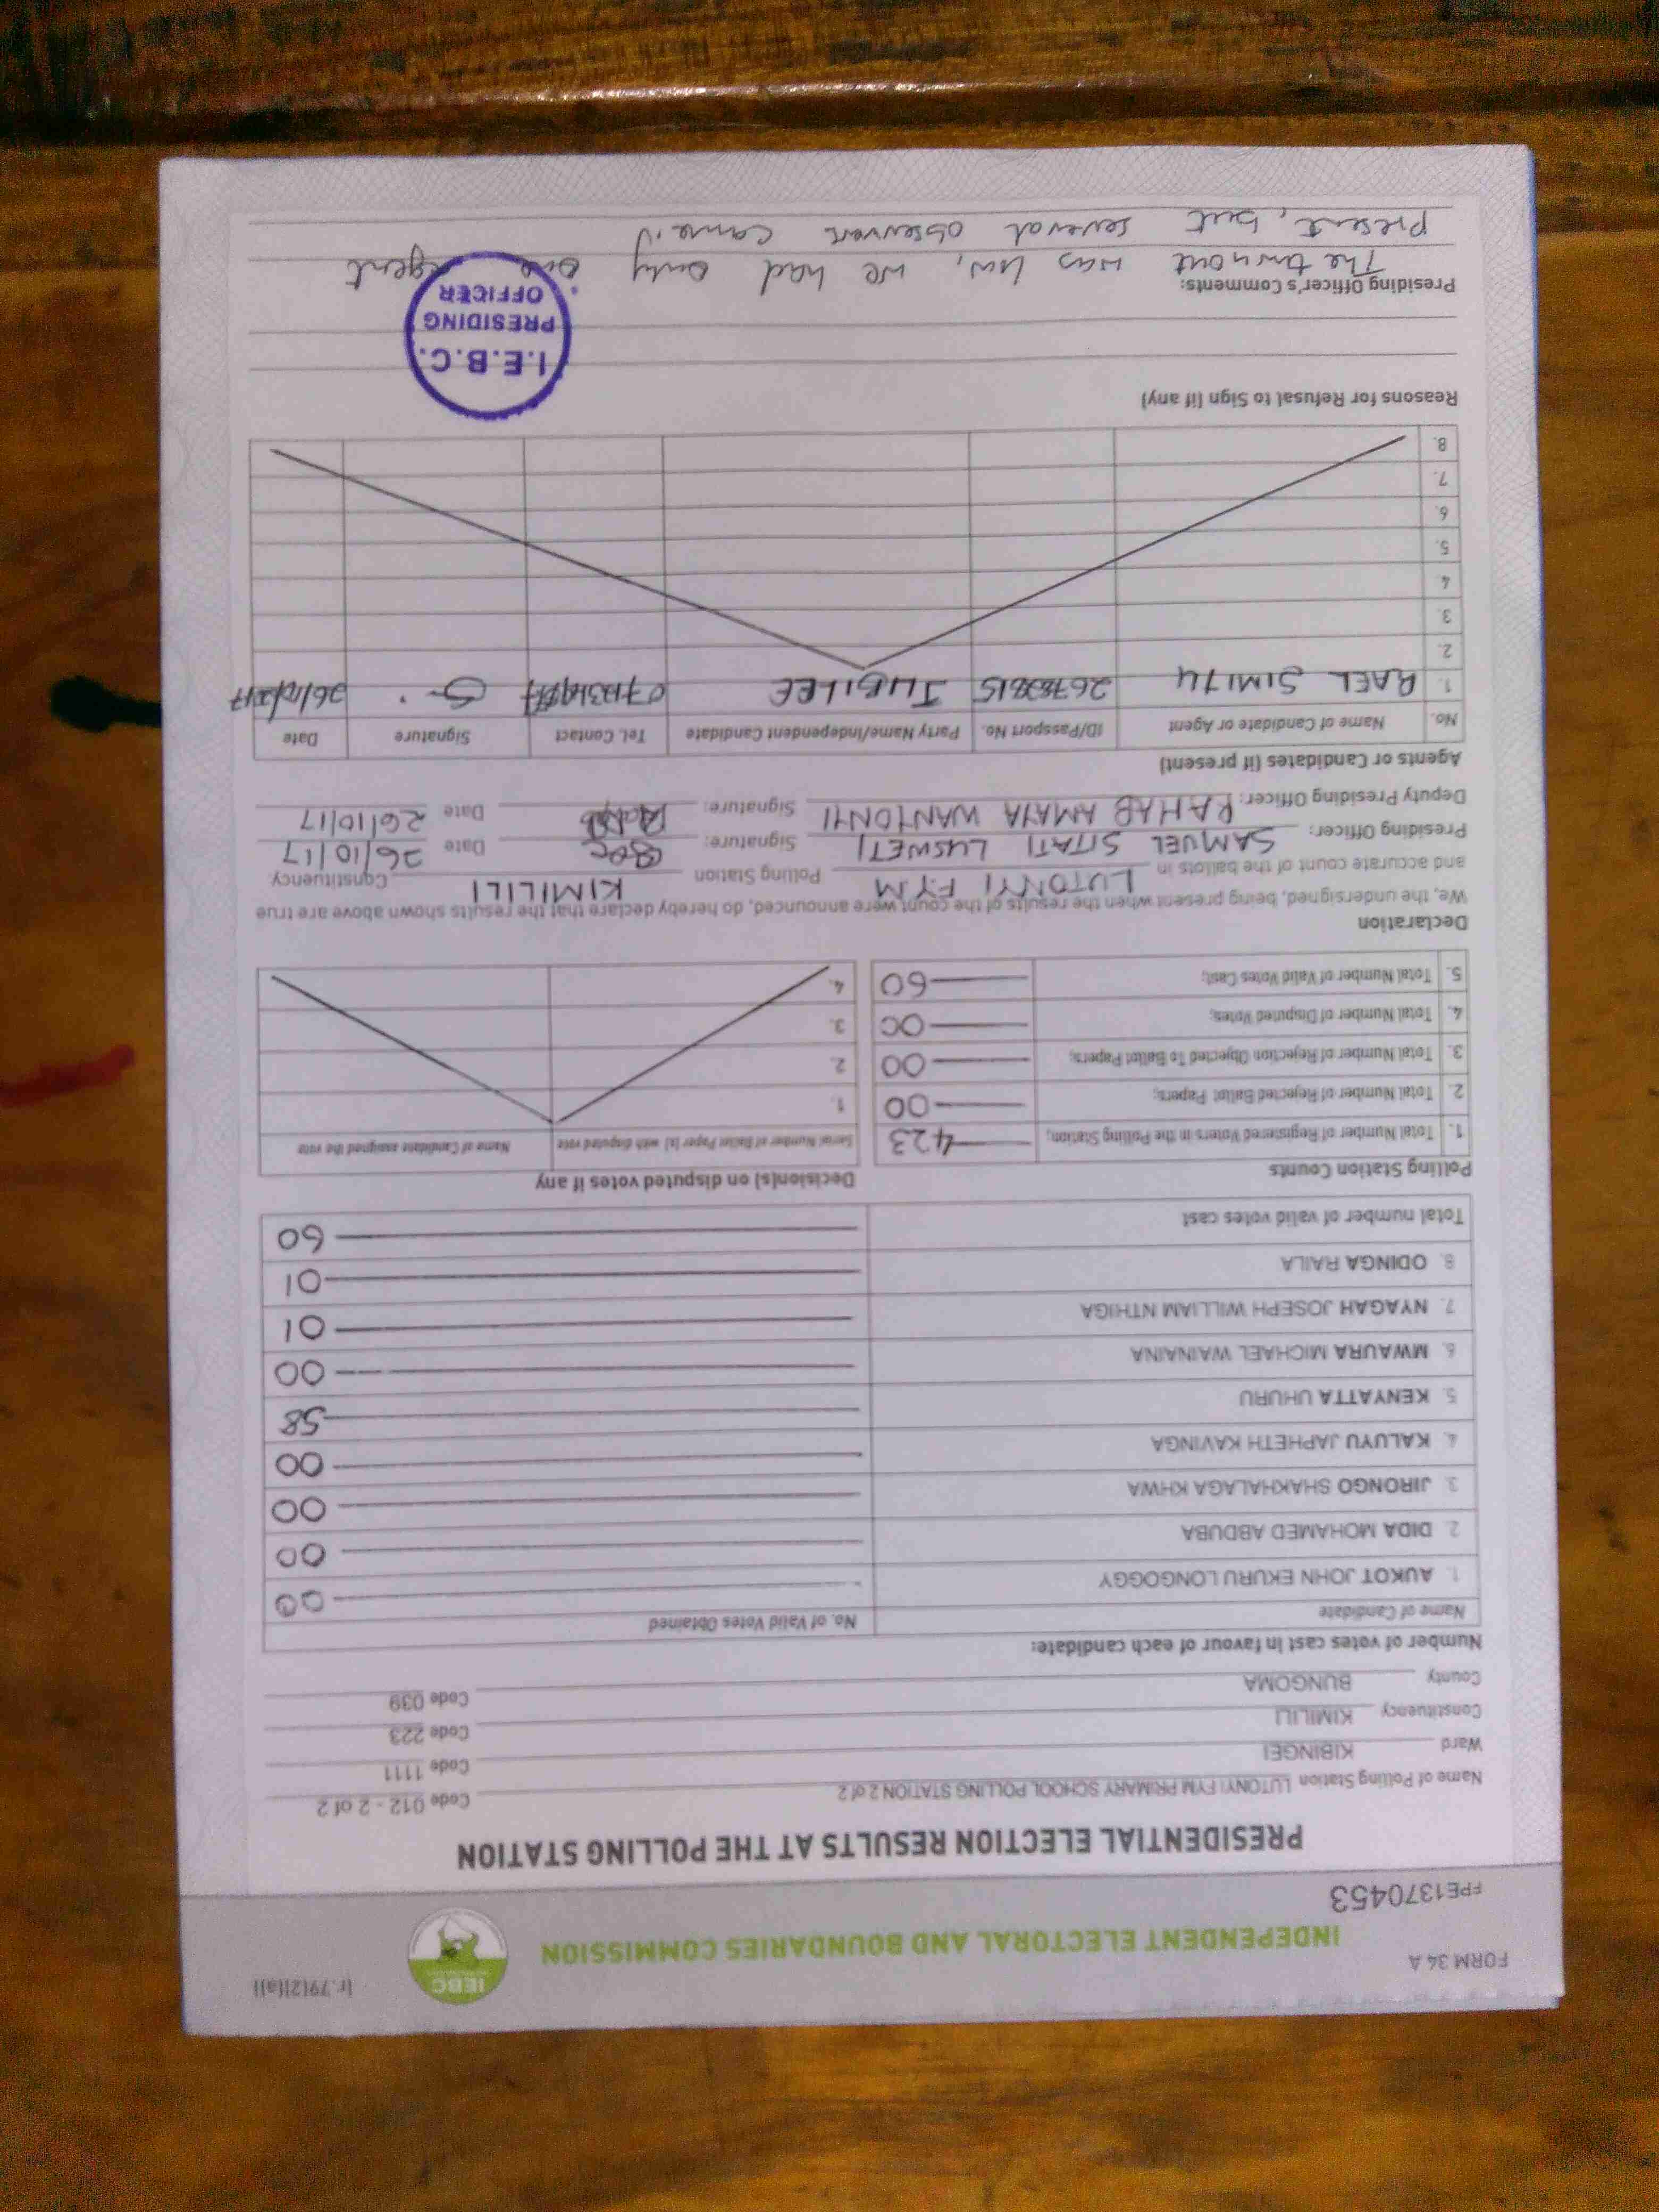 FORM 34 A
(r. 79(2)(a))
INDEPENDENT ELECTORAL AND BOUNDARIES COMMISSION
IEBC
FPE1370453
PRESIDENTIAL ELECTION RESULTS AT THE POLLING STATION
Name of Polling Station LUTONYI FYM PRIMARY SCHOOL POLLING STATION 2 of 2 Code 012 - 2 of 2
Ward KIBINGEI Code 1111
Constituency KIMILILI Code 223
County BUNGOMA Code 039
Number of votes cast in favour of each candidate:
Name of Candidate No. of Valid Votes Obtained
1. AUKOT JOHN EKURU LONGOGGY 00
2. DIDA MOHAMED ABDUBA 00
3. JIRONGO SHAKHALAGA KHWA 00
4. KALUYU JAPHETH KAVINGA 00
5. KENYATTA UHURU 58
6. MWAURA MICHAEL WAINAINA 00
7. NYAGAH JOSEPH WILLIAM NTHIGA 01
8. ODINGA RAILA 01
Total number of valid votes cast 60
Polling Station Counts
1. Total Number of Registered Voters in the Polling Station; 423
2. Total Number of Rejected Ballot Papers; 00
3. Total Number of Rejection Objected To Ballot Papers; 00
4. Total Number of Disputed Votes; 00
5. Total Number of Valid Votes Cast; 60
Decision(s) on disputed votes if any
Serial Number of Ballot Paper (s) with disputed vote Name of Candidate assigned the vote
1.
2.
3.
4.
Declaration
We, the undersigned, being present when the results of the count were announced, do hereby declare that the results shown above are true
and accurate count of the ballots in LUTONYI FYM Polling Station KIMILILI Constituency
Presiding Officer: SAMUEL SITATI LUSWETI Signature: Date 26/10/17
Deputy Presiding Officer: RAHAB AMAYA WANYONYI Signature: Date 26/10/17
Agents or Candidates (if present)
No. Name of Candidate or Agent ID/Passport No. Party Name/Independent Candidate Tel. Contact Signature Date
1. RAEL SIMIYU JUBILEE 26/10/2017
2.
3.
4.
5.
6.
7.
8.
Reasons for Refusal to Sign (if any)
I.E.B.C.
PRESIDING
OFFICER
Presiding Officer's Comments:
The turnout was low, we had only one agent
present, but several observers came.